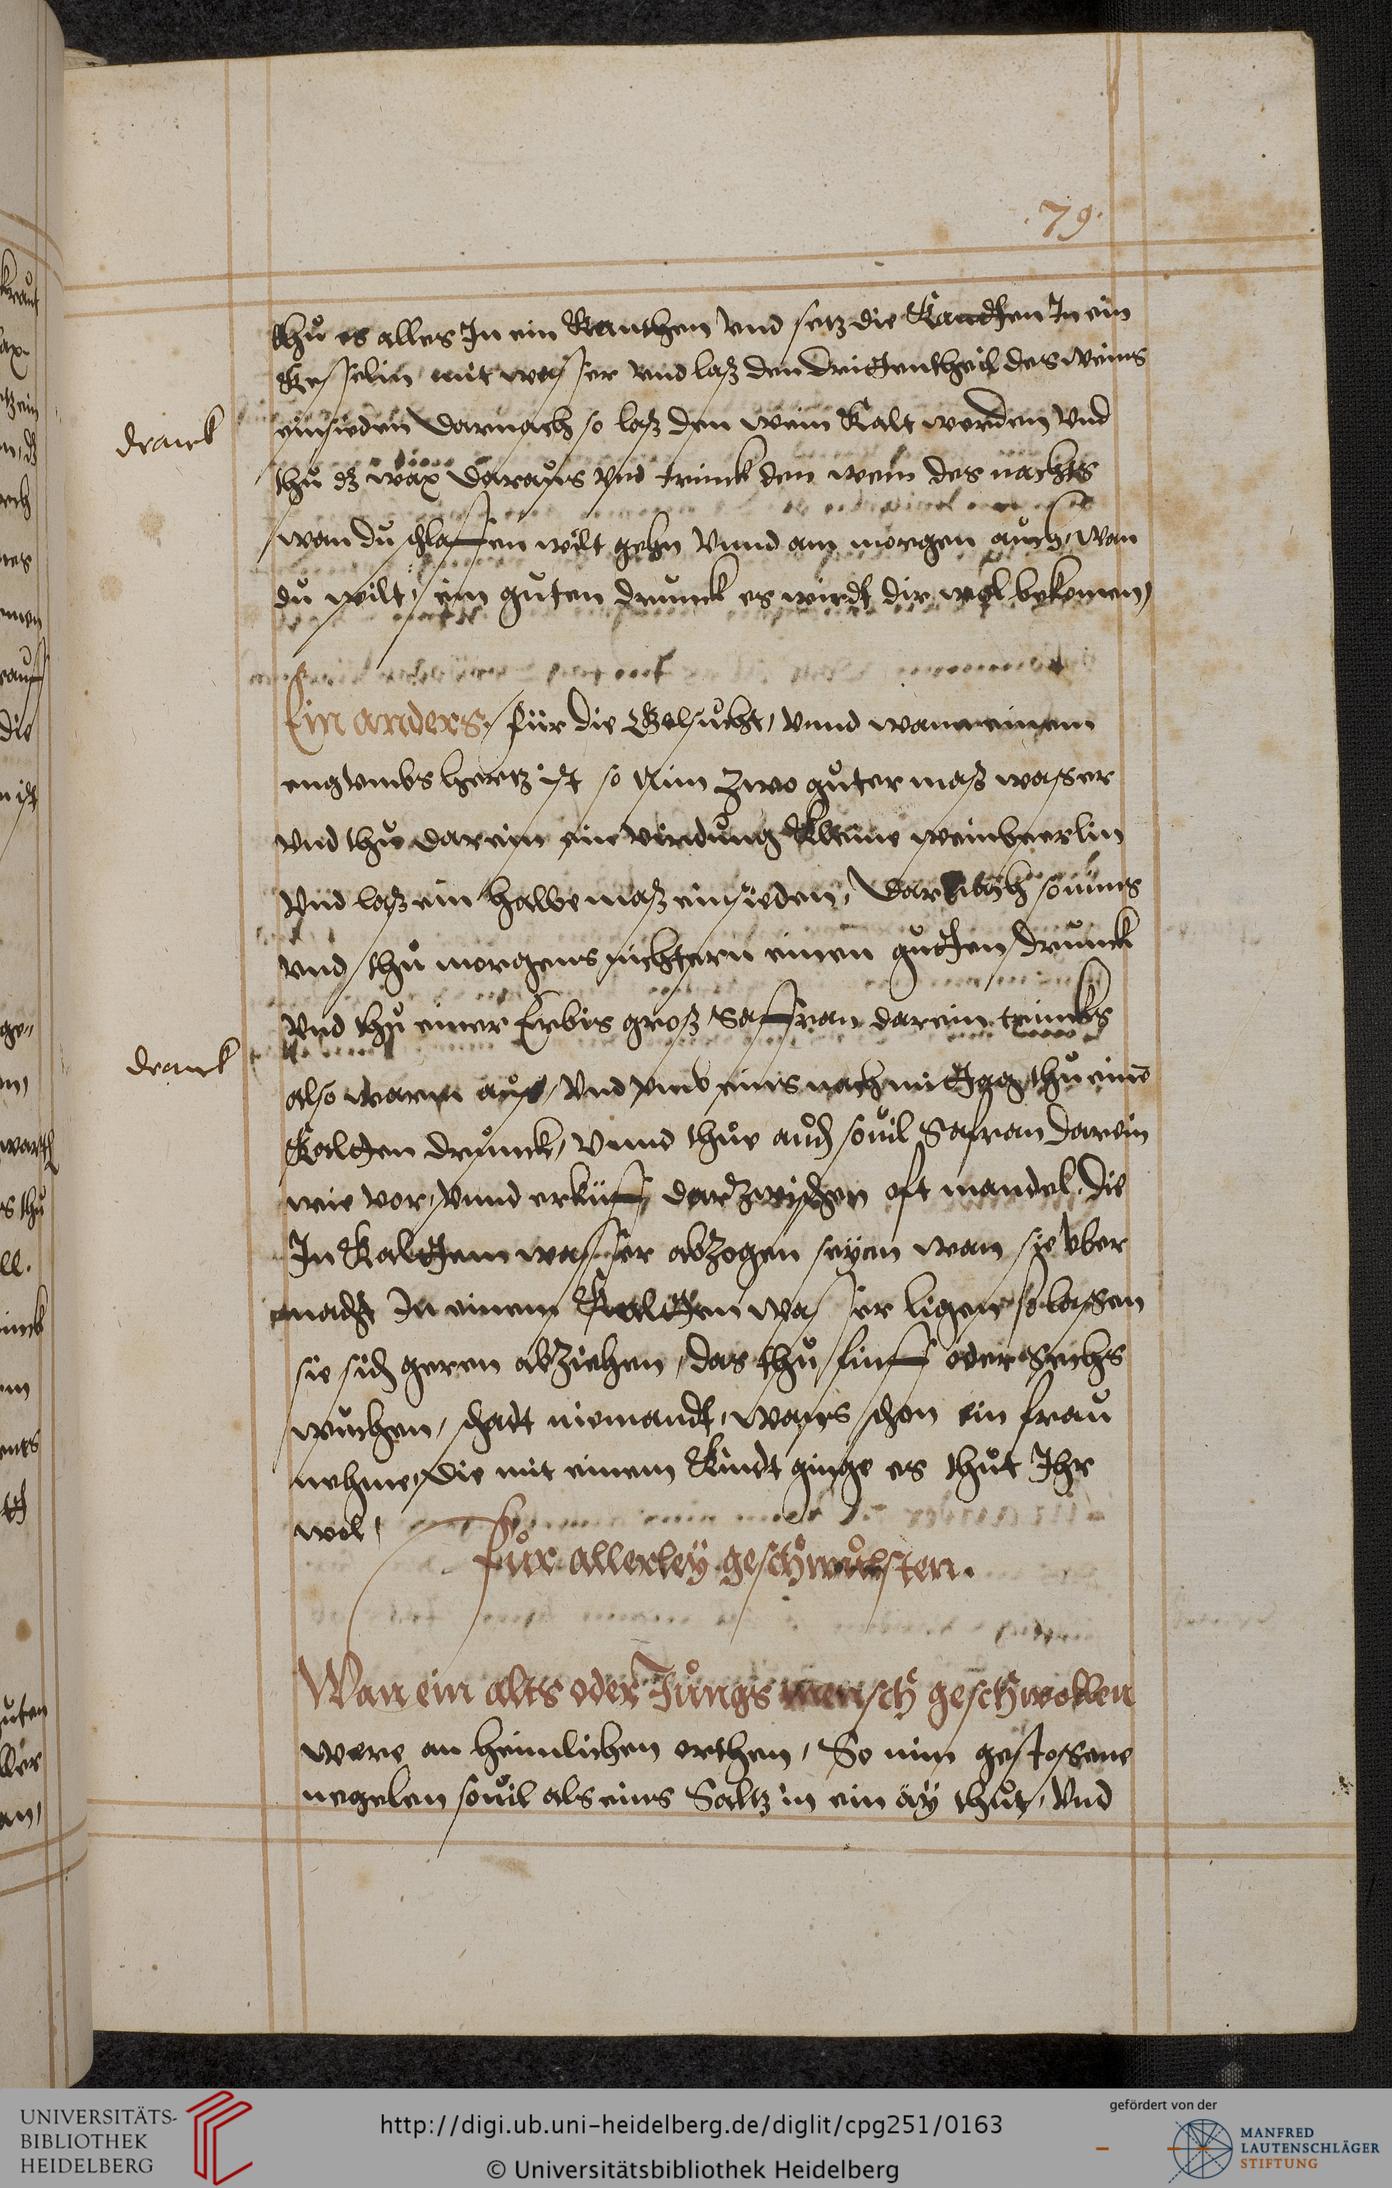 .79.
thů es alles In ein Kanthen vnd setz die Kandten In ein
Kesselin mit wasser vnd laß den drittentheil des weins
einsieden darnach so laß den wein Kalt werden vnd
dranck
thů dz wax daraůs vnd trinck den wein des nachts
wan du schlaffen wilt gehn vnnd am morgen aůch, wan
dů wilt, ein gůten drunck es wirdt dir wol bekomen,
Ein anders, für die Gelsůcht, vnnd wann einem
eng vmbs hertz ist so Nim zwo gůter maß wasser
vnd thů darein ein virdůng Kleine weinbeerlin
vnd laß ein halbe maß einsieden, darnach so nims
vnd thů morgens nichtern einen gůtten drunck
vnd thů einer Erbis groß Saffran darein trincks
dranck
also warm aůs, vnd vmb eins nachmittag thů eine
Kalten drůnck, vnnd thůe aůch souil Safran darein
wie vor, vnnd erküff darzwischen oft mandel, die
In Kaltem wasser abzogen seyen wan sie vber
nacht In einem Kaltten wasser ligen so lassen
sie sich geren abziehen, das thů finff oder Sechs
wůchen, schadt niemandt, wans schon ein fraů
nehme, die mit einem Kindt ginge es thůt Ihr
wol,
Für allerley geschwůlsten.
Wan ein alts oder Jůngs mensch geschwollen
were an heimlichen orthen, So nim gestossene
negelen souil als eins Saltz in ein äy thůt, vnd
UNIVERSITÄTS-
BIBLIOTHEK
HEIDELBERG
http://digi.ub.uni-heidelberg.de/diglit/cpg251/0163
© Universitätsbibliothek Heidelberg
gefördert von der
MANFRED
LAUTENSCHLÄGER
STIFTUNG